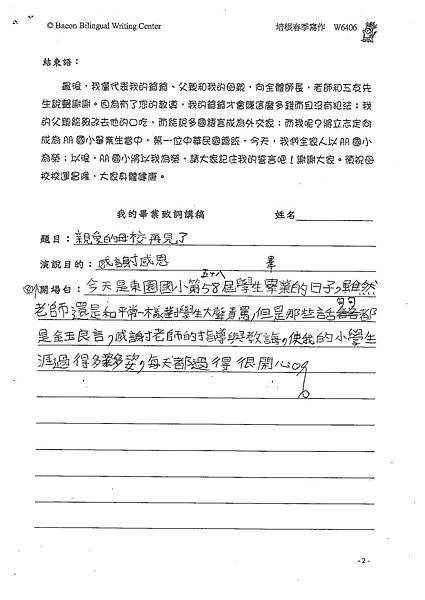 © Bacon Bilingual Writing Center 培根春季寫作 W6406
結束語：
最後，我僅代表我的爺爺、父親和我的母親，向全體師長，老師和五友先
生說聲謝謝。因為有了您的教導，我的爺爺才會賺這麼多錢而且沒有犯法；我
的父親能夠改去他的口吃，而能說多國語言成為外交家；而我呢？將立志走向
成為AA國小畢業生當中，第一位中華民國總統，今天，我們全家人以AA國小
為榮；以後，AA國小將以我為榮，請大家記住我的誓言吧！謝謝大家。預祝母
校校運昌隆，大家身體健康。
我的畢業致詞講稿 姓名
題目：親愛的母校再見了
演說目的：感謝感恩
五十八 畢
開場白：今天是東園國小第58屆學生畢業的日子，雖然
老師還是和平常一樣對學生大聲責罵，但是那些話都
是金玉良言，感謝老師的指導與教誨，使我的小學生
涯過得多彩多姿，每天都過得很開心。
-2-